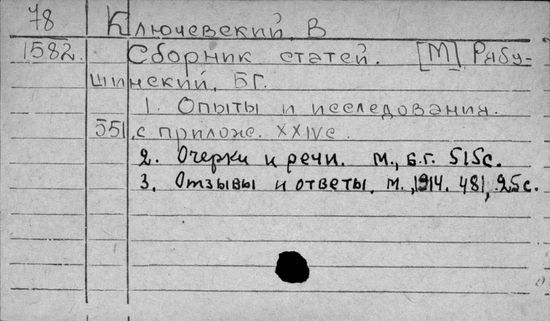 78 Ключевский, В
1582. Сборник статей. [М] Рябу-
шинский, Б Г.
1. Опыты и исследования.
551 с прилож. XXIV с.
2. Очерки и речи. М., б.г. 515 с.
3. Отзывы и ответы. М., 1914. 481, 25 с.